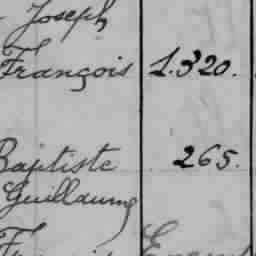 Joseph
François 1.320.
Baptiste 265.
Guillaume